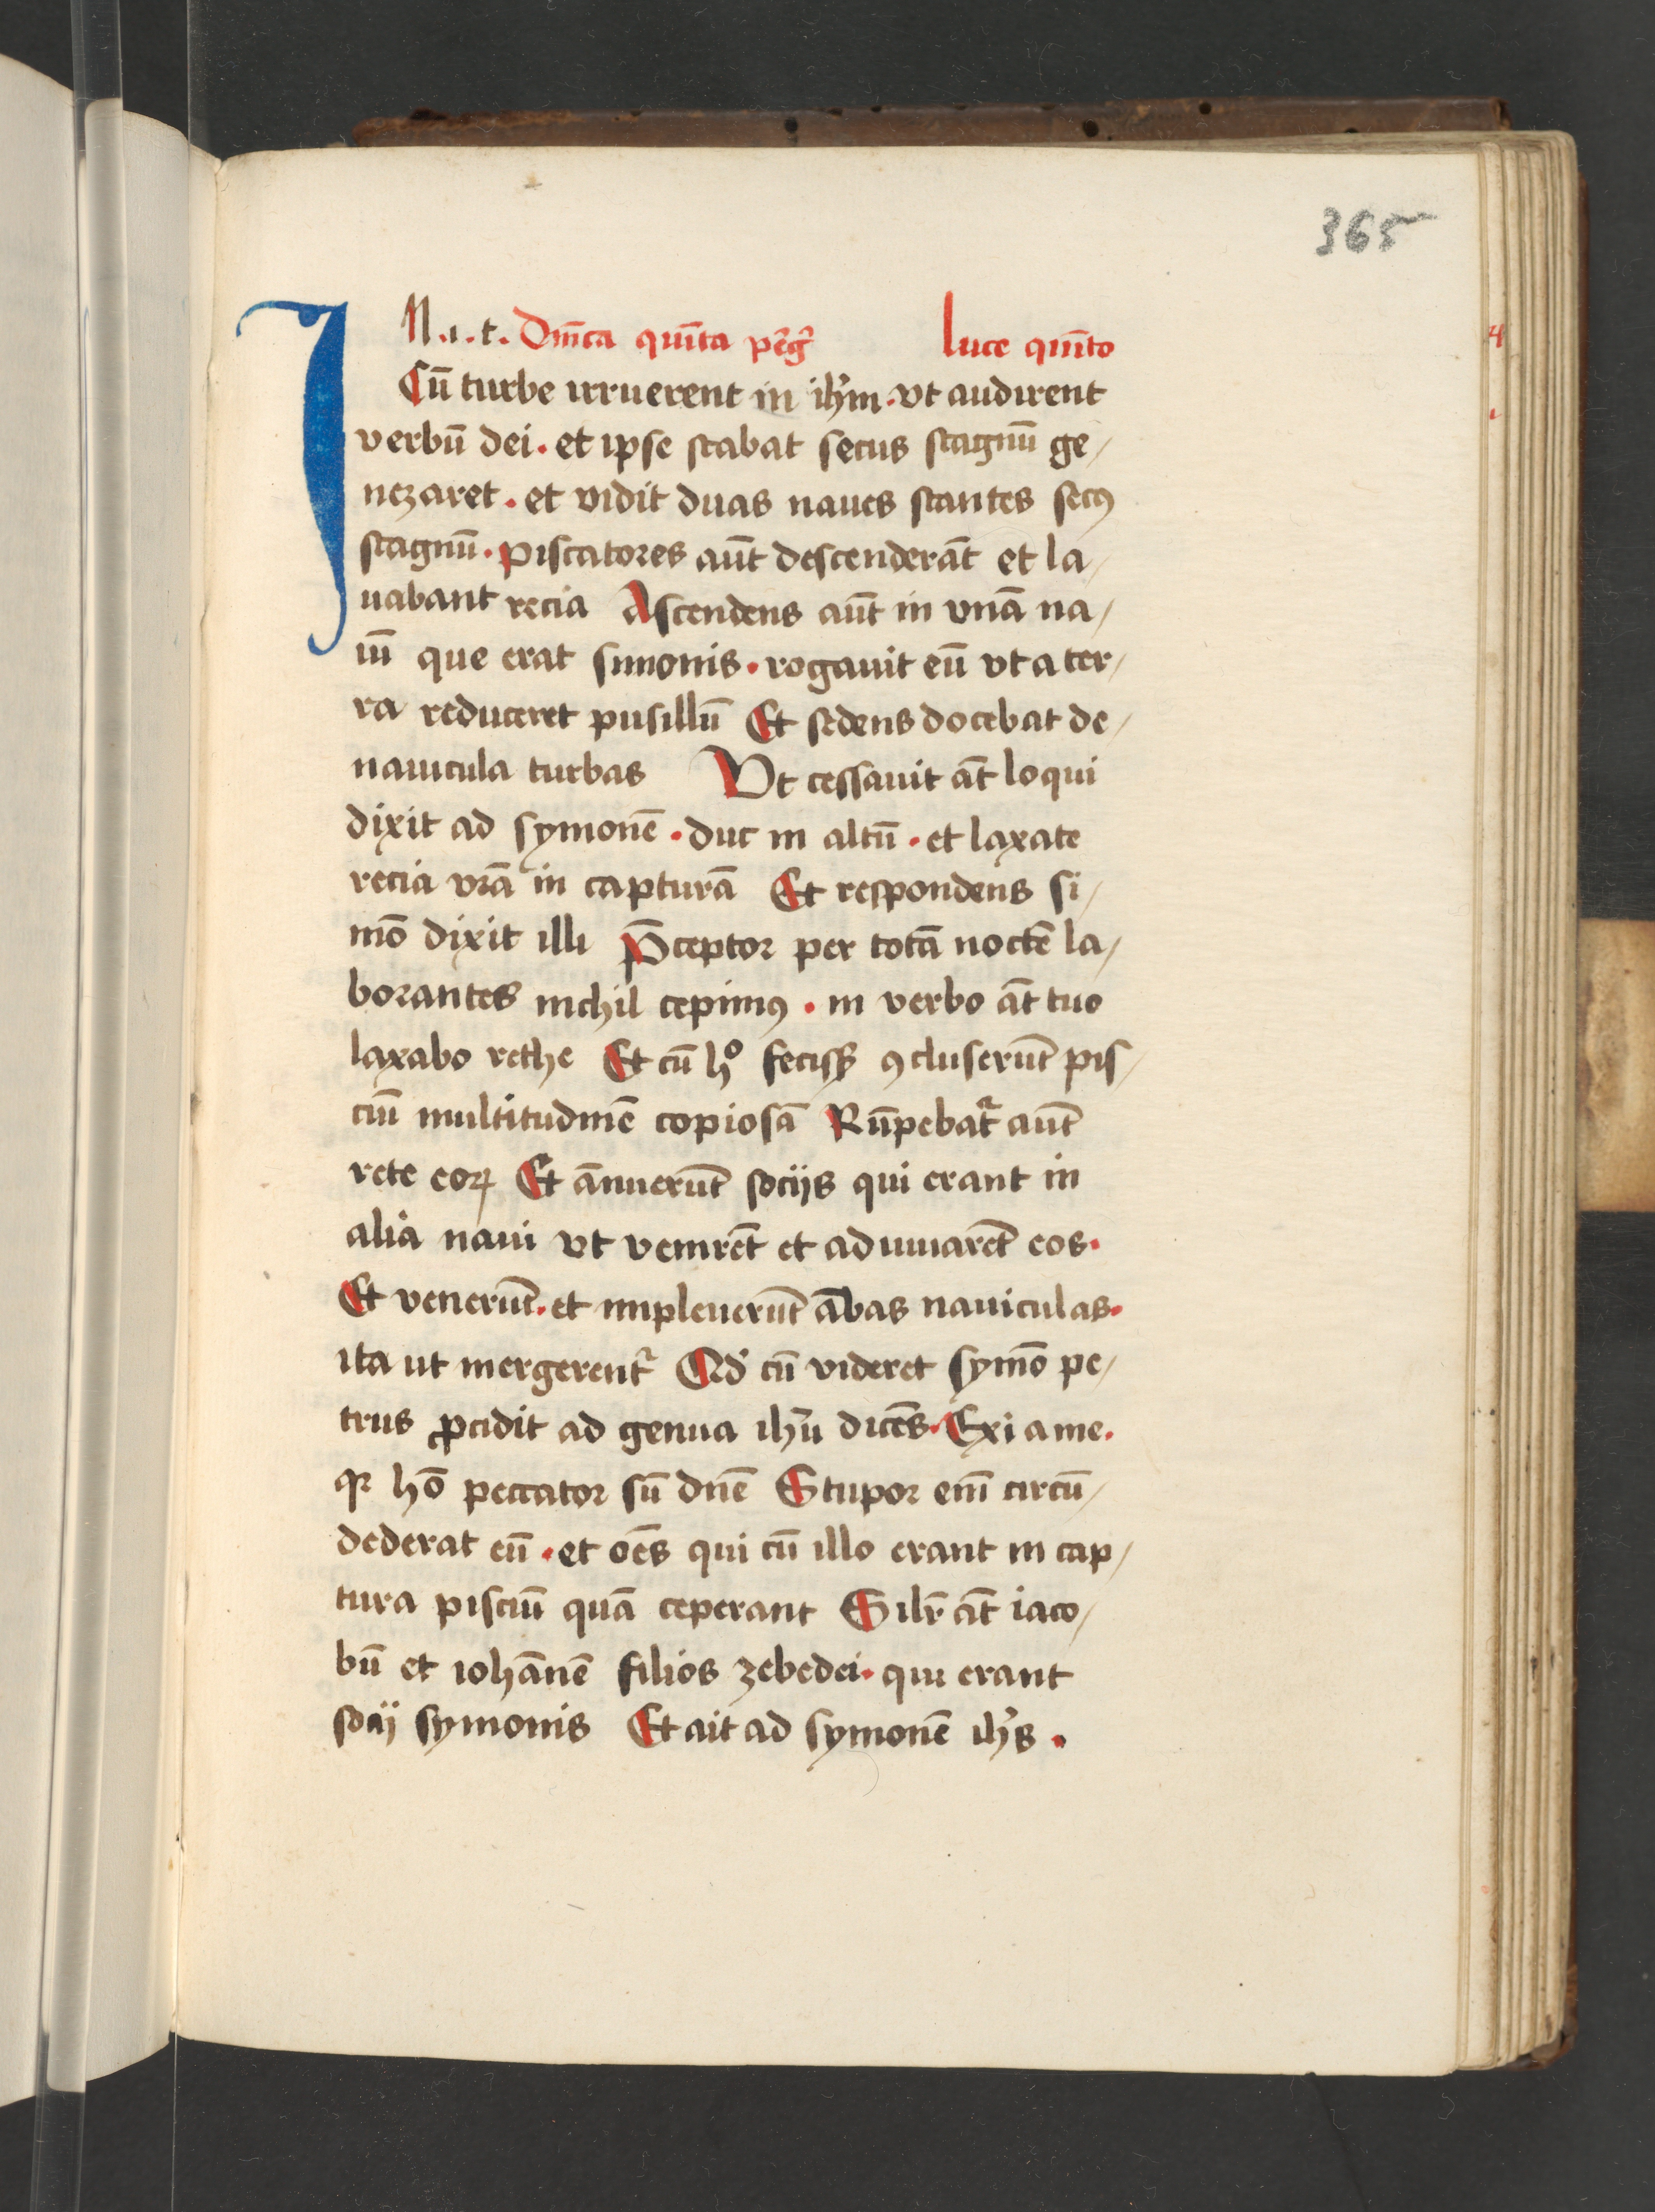 365
IN .i. t. Dn̄ica quīta pēg̃ luce quīto
Cū turbe irruerent in ih̄m · vt audirent
verbū dei · et ipse stabat secus stagnū ge/
nezaret · et vidit duas naues stantes secꝰ
stagnū · piscatores aūt descenderāt et la/
uabant recia Ascendens aūt in vnā na/
uī que erat simonis · rogauit eū vt a ter/
ra reduceret pusillū Et sedens docebat de/
nauicula turbas Vt cessauit āt loqui
dixit ad symonē · duc in altū · et laxate
recia vrā in capturā Et respondens si/
mō dixit illi P̄ceptor per totā noctē la/
borantes nichil cepimꝰ · in verbo āt tuo
laxabo rethe Et cū hͦ feciss₃ ꝯcluserūt pis/
ciū multitudinē copiosā Rūpebat᷑ aūt
rete eoꝝ Et ānuerūt socijs qui erant in
alia naui vt venirēt et adiuuarēt eos ·
Et venerūt · et impleuerūt ābas nauiculas ·
ita ut mergerent᷑ Qd̄ cū videret symō pe/
trus ꝓcidit ad genua ih̄u dicēs · Exi a me ·
qꝛ hō peccator sū dn̄e Stupor eī circū/
dederat eū · et oēs qui cū illo erant in cap/
tura pisciū quā ceperant Silr̄ āt iaco/
bū et iohānē filios zebedei · qui erant
socij symonis Et ait ad symonē ih̄s ·